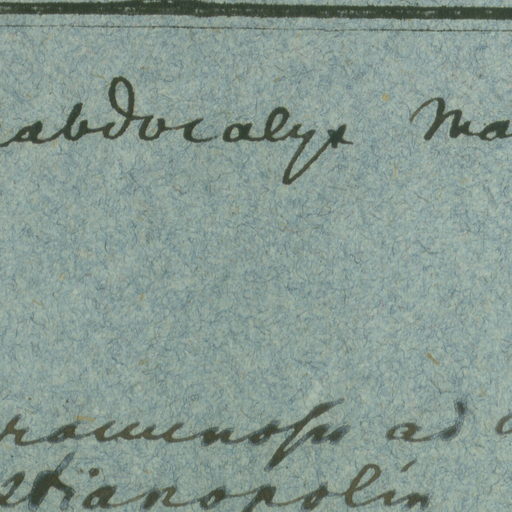 abdocalyx Ma
raminosis ad
stianopolin